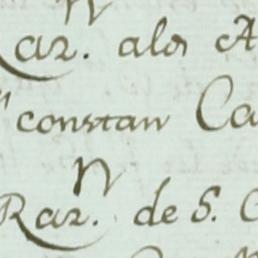 Raz.n alos A
constan Ca
Raz.n de S. C